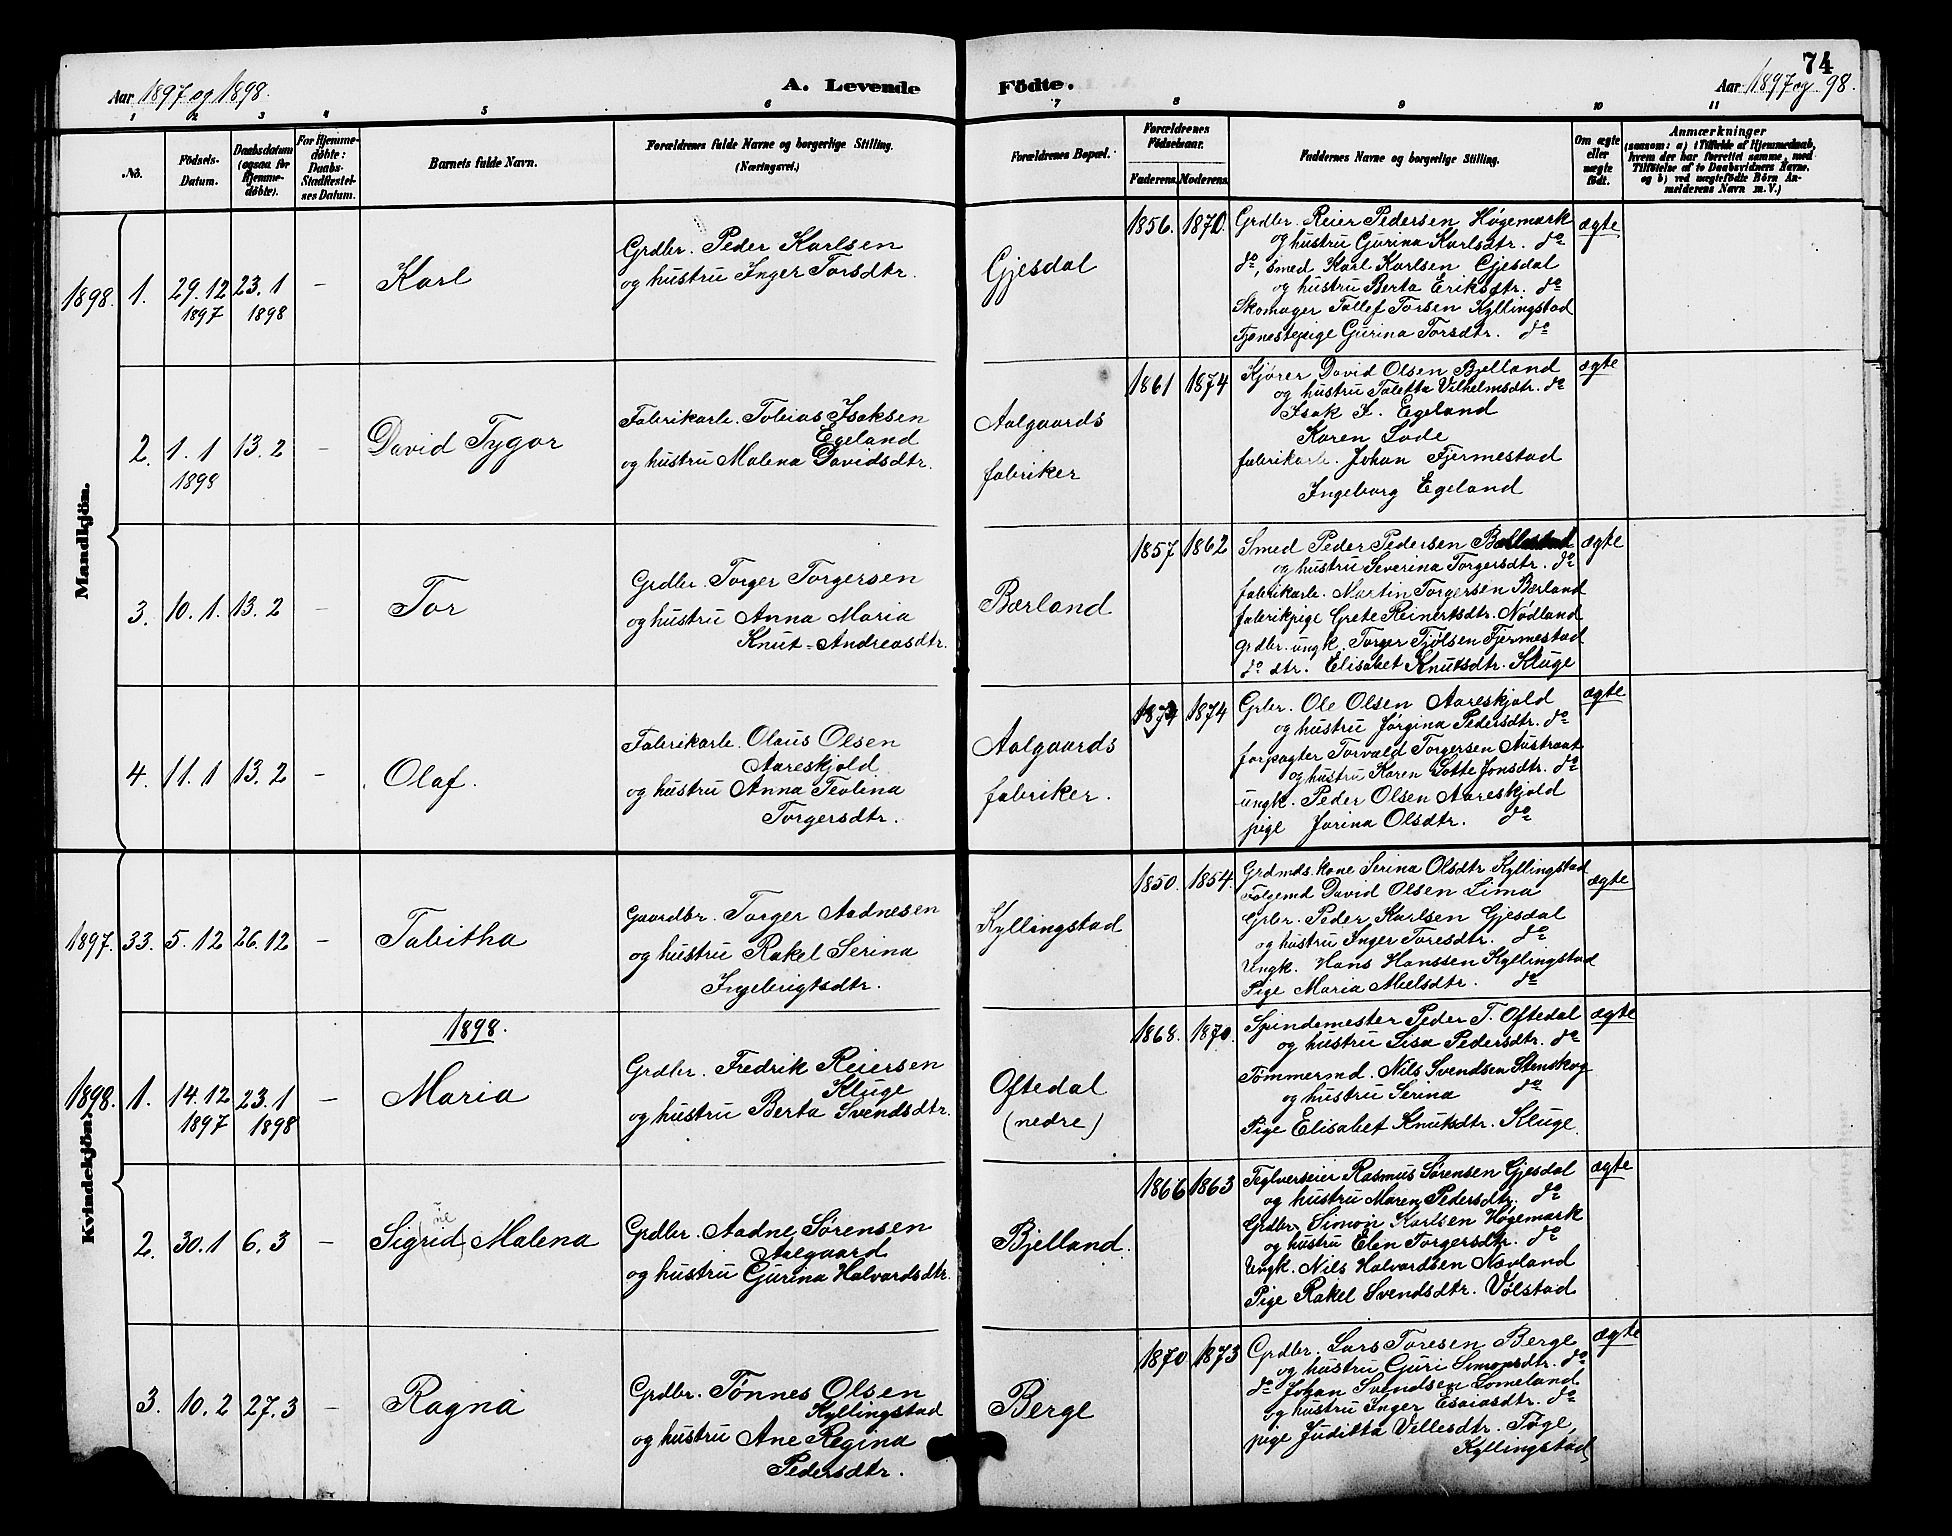 74
Aar 1897 og 1898.
A. Levende Födte.
Aar 1897 og 98.
1 2 3 4 5 6 7 8 9 10 11
No.
Födsels-Datum.
Daabsdatum (ogsaa for Hjemme-döbte).
For Hjemme-döbte: Daabs-Stadfæstel-ses Datum.
Barnets fulde Navn.
Forældrenes fulde Navne og borgerlige Stilling.
(Næringsvei.)
Forældrenes Bopæl.
Forældrenes Födselsaar.
Faderens. Moderens.
Faddernes Navne og borgerlige Stilling.
Om ægte eller uægte födt.
Anmærkninger
(saasom: a) i Tilfælde af Hjemmedaab,
hvem der har forrettet samme, med
Tilföielse af to Daabsvidners Navne,
og b) ved uægtefödte Börn An-
melderens Navn m. V.)
Mandkjön.
1898. 1. 29.12 1897 23.1 1898 –
Karl
Grdbr. Peder Karlsen
og hustru Inger Torsdtr.
Gjesdal
1856. 1870.
Grdbr. Reier Pedersen Høgemark
og hustru Gurina Karlsdtr. do
do, smed Karl Karlsen Gjesdal
og hustru Berta Eriksdtr. do
Skomager Tollef Torsen Kyllingstad
Tjenestepige Gurina Torsdtr. do
ægte
2. 1.1 1898 13.2 –
David Tygor
Fabrikarb. Tobias Isaksen
Egeland
og hustru Malena Davidsdtr.
Aalgaards
fabriker
1861 1874
Kjører David Olsen Bjelland
og hustru Taletta Vilhelmsdtr. do
Isak I. Egeland
Karen Lode
fabrikarb. Johan Fjermestad
Ingeborg Egeland
ægte
3. 10.1. 13.2 –
Tor
Grdbr. Torger Torgersen
og hustru Anna Maria
Knut-Andreasdtr.
Bærland
1857 1862
Smed Peder Pedersen
og hustru Severina Torgersdtr. do
fabrikarb. Martin Torgersen Bærland
fabrikpige Grete Reinertsdtr. Nødland
grdbr. ungk. Torger Tjølsen Fjermestad
do dtr. Elisabet Knutsdtr. Kluge
ægte
4. 11.1 13.2 –
Olaf.
Fabrikarb. Olaus Olsen
Aareskjold
og hustru Anna Teolina
Torgersdtr.
Aalgaards
fabriker.
1874
Grbr. Ole Olsen Aareskjold
og hustru Jørgina Pedersdtr. do
forpagter Torvald Torgersen Austraat
og hustru Karen Lotte Jonsdtr. do
ungk. Peder Olsen Aareskjold
pige Jorina Olsdtr. do
ægte
Kvindekjön.
1897. 33. 5.12 26.12 –
Tabitha
Gaardbr. Torger Aadnesen
og hustru Rakel Serina
Ingebrigtsdtr.
Kyllingstad
1850. 1854.
Grdmds. kone Serina Olsdtr Kyllingstad
Følgemd David Olsen Lima
Grbr. Peder Karlsen Gjesdal
og hustru Inger Toresdtr. do
Ungk. Hans Hanssen Kyllingstad
Pige Maria Mielsdtr. do
ægte
1898.
1898. 1. 14.12 1897 23.1 1898 –
Maria
Grdbr. Fredrik Reiersen
Kluge
og hustru Berta Svendsdtr.
Oftedal
(nedre)
1868. 1870.
Spindemester Peder T. Oftedal
og hustru Lisa Pedersdtr. do
Tømmermd. Nils Svendsen Stenskog
og hustru Serina do
Pige Elisabet Knutsdtr. Kluge.
ægte
2. 30.1 6.3 –
Sigrid (ne) Malena
Grdbr. Aadne Sørensen
Aalgaard
og hustru Gurina Halvardsdtr.
Bjelland.
1866 1863
Teglverkseier Rasmus Sørensen Gjesdal
og hustru Maren Pedersdtr. do
Grdbr. Simon Karlsen Høgemark
og hustru Elen Torgersdtr. do
Ungk. Nils Halvardsen Novland
Pige Rakel Svendsdtr. Vølstad
ægte
3. 10.2 27.3 –
Ragna
Grdbr. Tønnes Olsen
Kyllingstad
og hustru Ane Regina
Pedersdtr.
Berge
1870 1873
Grdbr. Lars Toresen Berge
og hustru Guri Simonsdtr. do
do Johan Svendsen Lomeland
og hustru Inger Esaiasdtr. do
pige Juditta Villesdtr. Tøge,
Kyllingstad
ægte